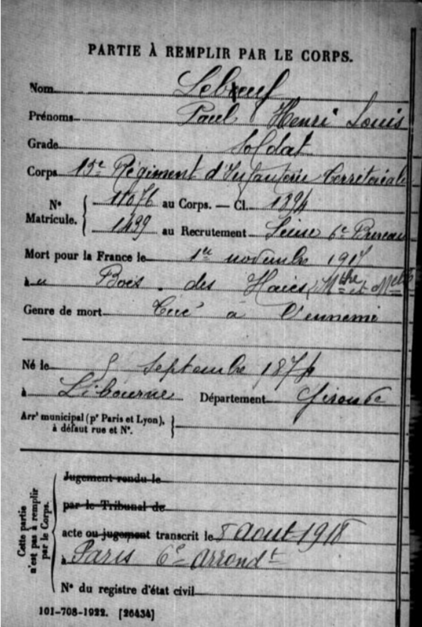 PARTIE À REMPLIR PAR LE CORPS.
Nom Lebœuf
Prénoms Paul Henri Louis
Grade Soldat
Corps 15e Régiment d'Infanterie Territoriale
N° Matricule. { 11076 au Corps. — Cl. 1894
1499 au Recrutement Seine 6e Bureau
Mort pour la France le 1er novembre 1917
au Bois des Haies, Mthe et Mlle
Genre de mort Tué à l'ennemi
Né le 5 septembre 1874
à Libourne Département Gironde
Arrt municipal (pr Paris et Lyon),
à défaut rue et N°.
Cette partie n'est pas à remplir par le Corps.
Jugement rendu le
par le Tribunal de
acte ou jugement transcrit le 8 août 1918
à Paris 6e arrondt
N° du registre d'état civil
101-708-1922. [26434]